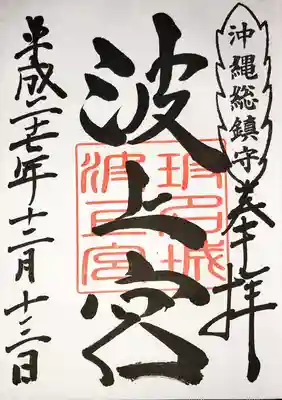 沖縄総鎮守
奉拝
波上宮
波上宮
平成二七年十二月十三日